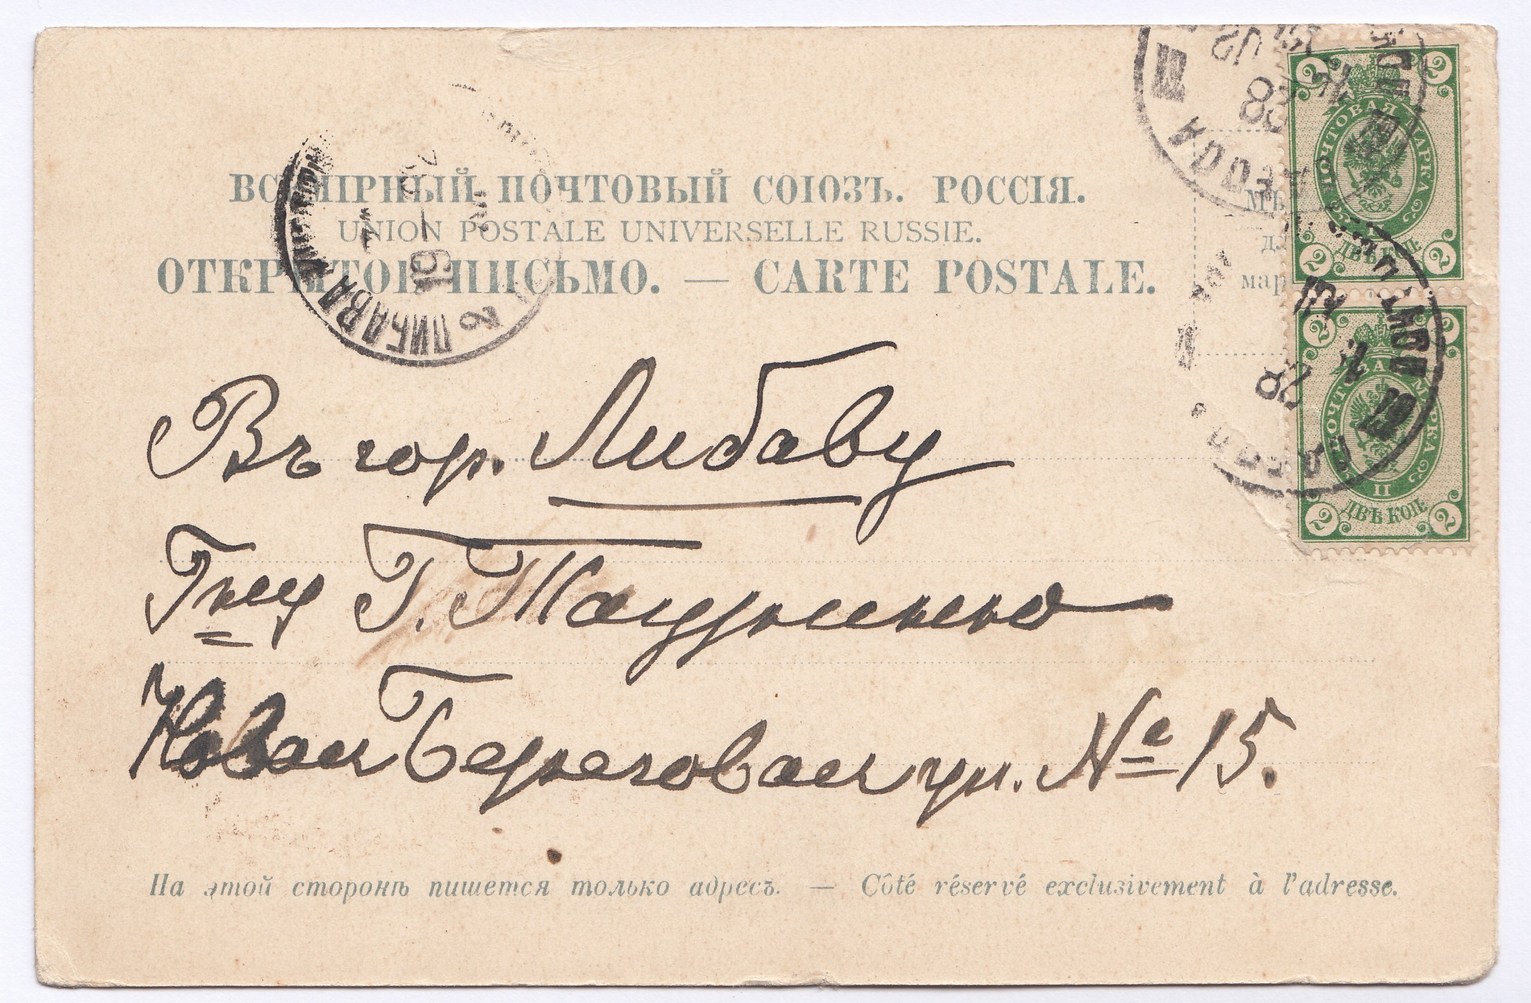 ВСЕМІРНЫЙ ПОЧТОВЫЙ СОЮЗЪ. РОССІЯ.
UNION POSTALE UNIVERSELLE RUSSIE.
ОТКРЫТОЕ ПИСЬМО. — CARTE POSTALE.
ПОЧТОВАЯ МАРКА
2 2
ДВѢ КОП.
2 2
мар
ПОЧТОВАЯ МАРКА
2 2
II
ДВѢ КОП.
2 2
ОДЕССА
28
28
ЛИБАВА
2
19
Въ гор. Либаву
Г. 
Новая Береговая ул. № 15.
На этой сторонѣ пишется только адресъ. — Côté réservé exclusivement à l'adresse.